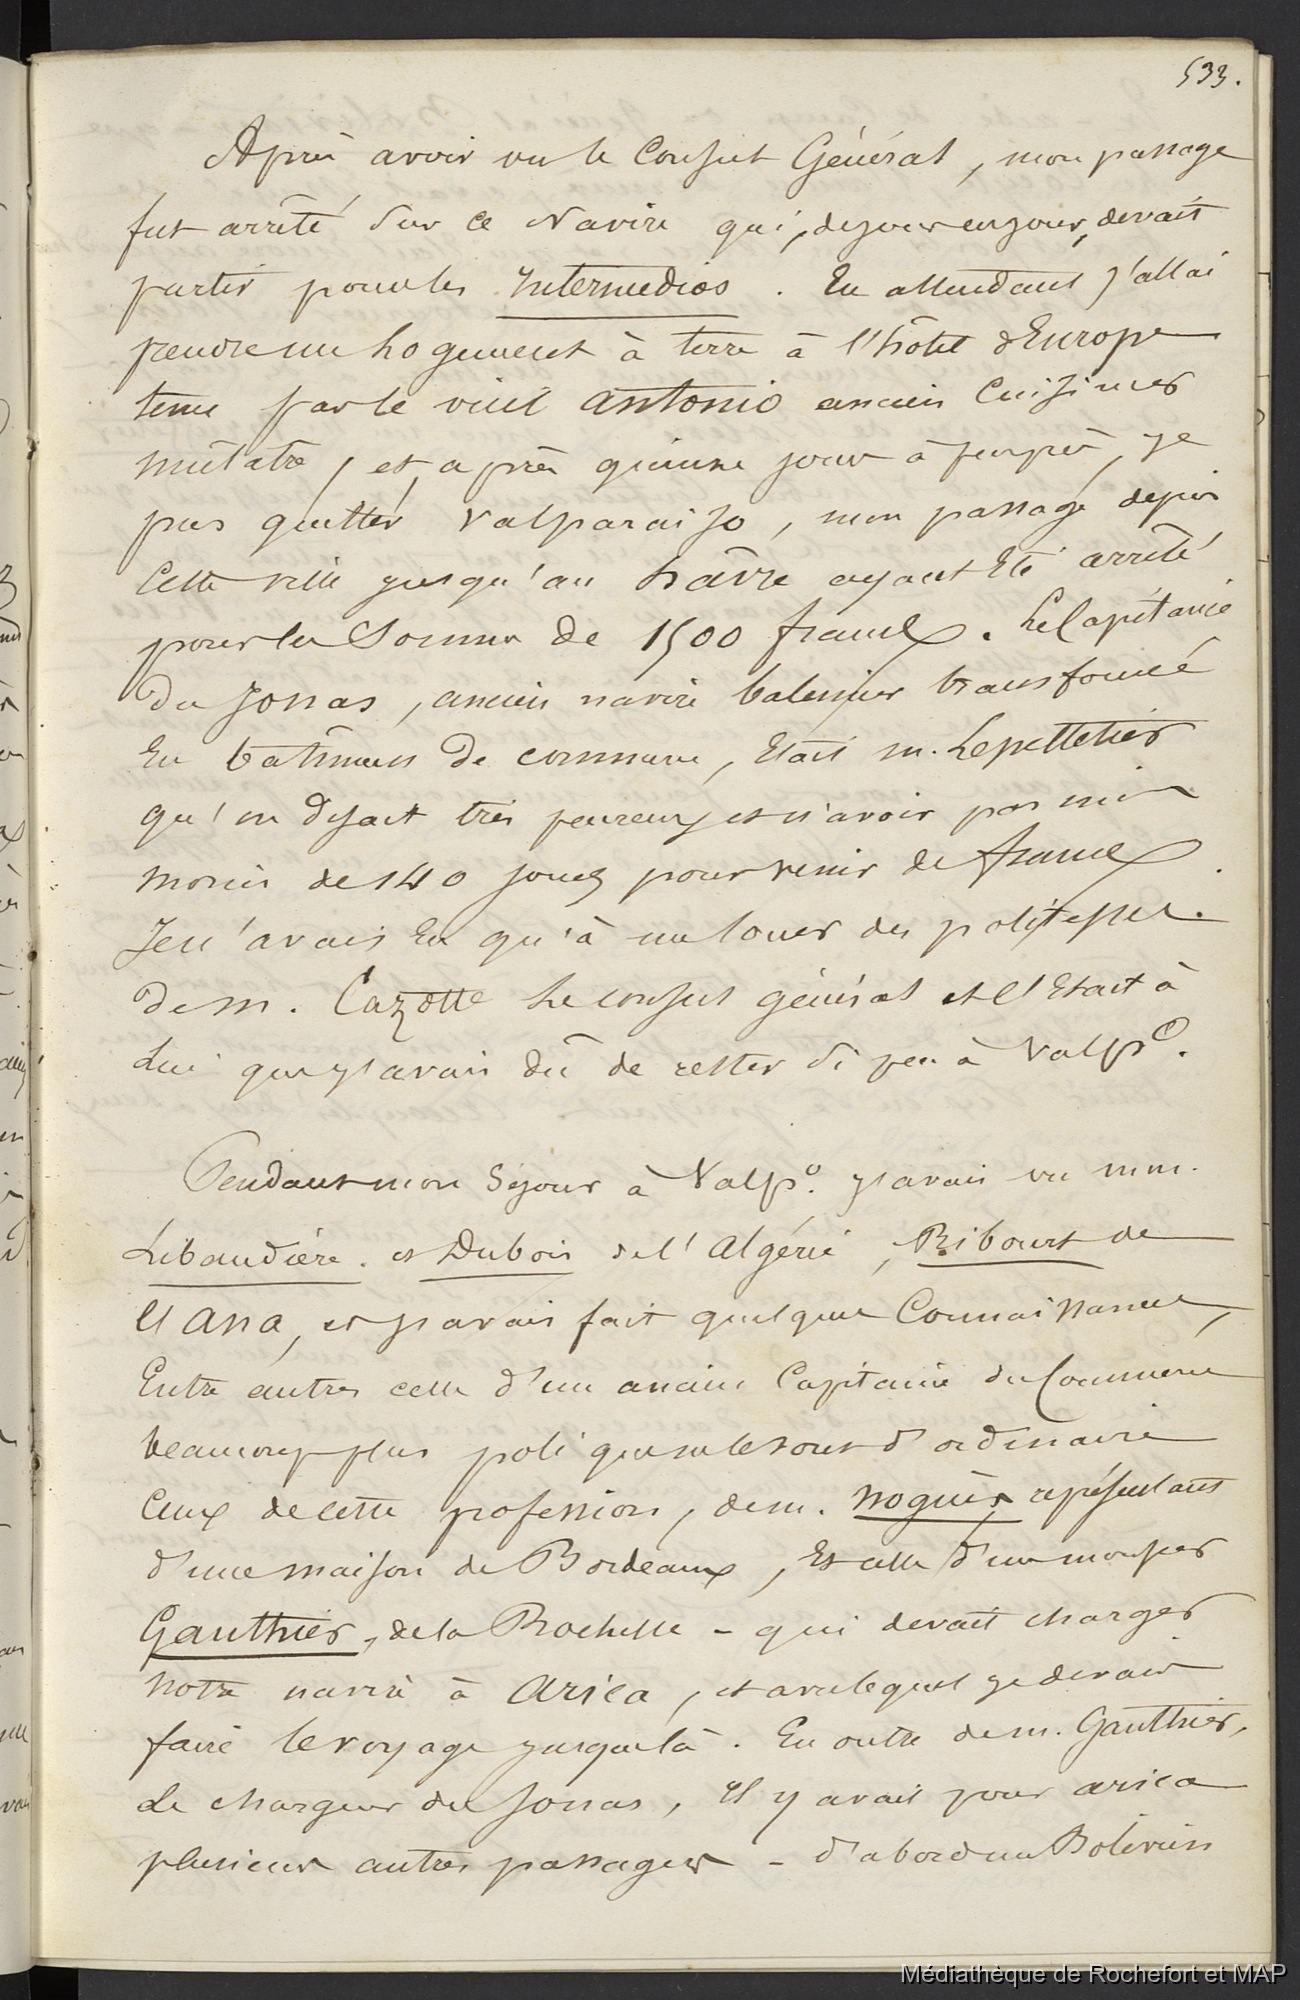 533.
Après avoir vu le Consul Général, mon passage
fut arrêté sur ce Navire qui, de jour en jour, devait
partir pour les Intermedios. En attendant j'allai
prendre un logement à terre à l'hôtel d'Europe
tenu par le vieil Antonio ancien Cuisinier
mulâtre, et après quinze jours à peu près, je
pus quitter Valparaiso, mon passage depuis
cette ville jusqu'au hâvre ayant Eté arrêté
pour la Somme de 1500 francs. Le Capitaine
du Jonas, ancien navire baleinier transformé
En bâtiment de commerce, Etait m. Lepelletier
qu'on disait très peureux et n'avoir pas mis
moins de 140 jours pour venir de france.
Je n'avais Eu qu'à me louer des politesses
de m. Cazotte le consul général et c'Etait à
Lui que j'avais dû de rester si peu à Valpo.
Pendant mon Séjour à Valpo. j'avais vu mm.
Libaudière. et Dubois de l'Algérie, Ribourt de
l'Assa, et j'avais fait quelques Connaissances,
Entre autres celle d'un ancien Capitaine du Commerce
beaucoup plus poli que ne le sont d'ordinaire
Ceux de cette profession, de m. Noguès, représentant
d'une maison de Bordeaux, Et celle d'un monsieur
Gauthier, de la Rochelle - qui devait charger
notre navire à Arica, et avec lequel je devais
faire le voyage jusque là. En outre de m. Gauthier,
Le chargeur du Jonas, il y avait pour arica
plusieurs autres passagers - d'abord un Bolivien
Médiathèque de Rochefort et MAP